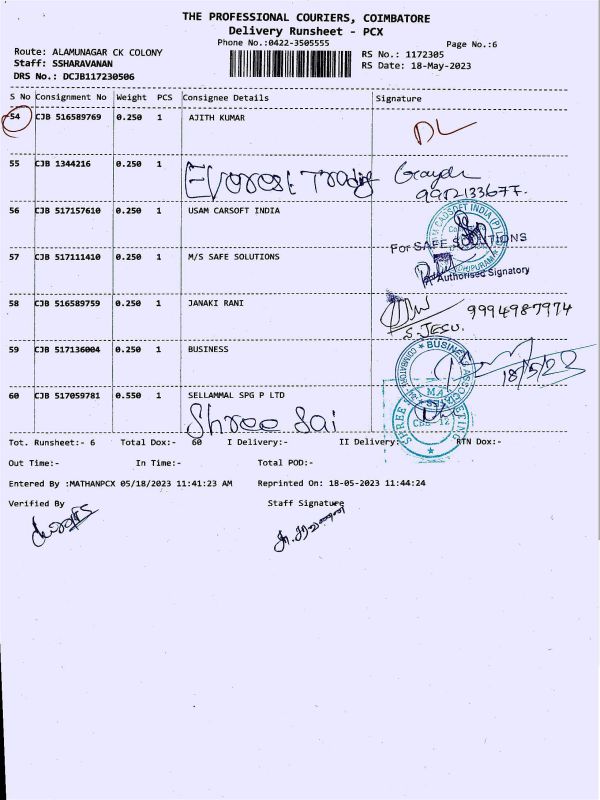 THE PROFESSIONAL COURIERS, COIMBATORE
Delivery Runsheet - PCX
Phone No.:0422-3505555
Page No.:6
Route: ALAMUNAGAR CK COLONY
RS No.: 1172305
Staff: SSHARAVANAN
RS Date: 18-May-2023
DRS No.: DCJB117230506
S No Consignment No Weight PCS Consignee Details Signature
54 CJB 516589769 0.250 1 AJITH KUMAR
DL
55 CJB 1344216 0.250 1 Everest Trading
9952133677.
56 CJB 517157610 0.250 1 USAM CARSOFT INDIA
For SAFE SOLUTIONS
57 CJB 517111410 0.250 1 M/S SAFE SOLUTIONS
Authorised Signatory
58 CJB 516589759 0.250 1 JANAKI RANI
9994987974
S.JESU.
59 CJB 517136004 0.250 1 BUSINESS
18/5/23
60 CJB 517059781 0.550 1 SELLAMMAL SPG P LTD
Shree Sai
Tot. Runsheet:- 6 Total Dox:- 60 I Delivery:- II Delivery:- RTN Dox:-
Out Time:- In Time:- Total POD:-
Entered By :MATHANPCX 05/18/2023 11:41:23 AM Reprinted On: 18-05-2023 11:44:24
Verified By Staff Signature